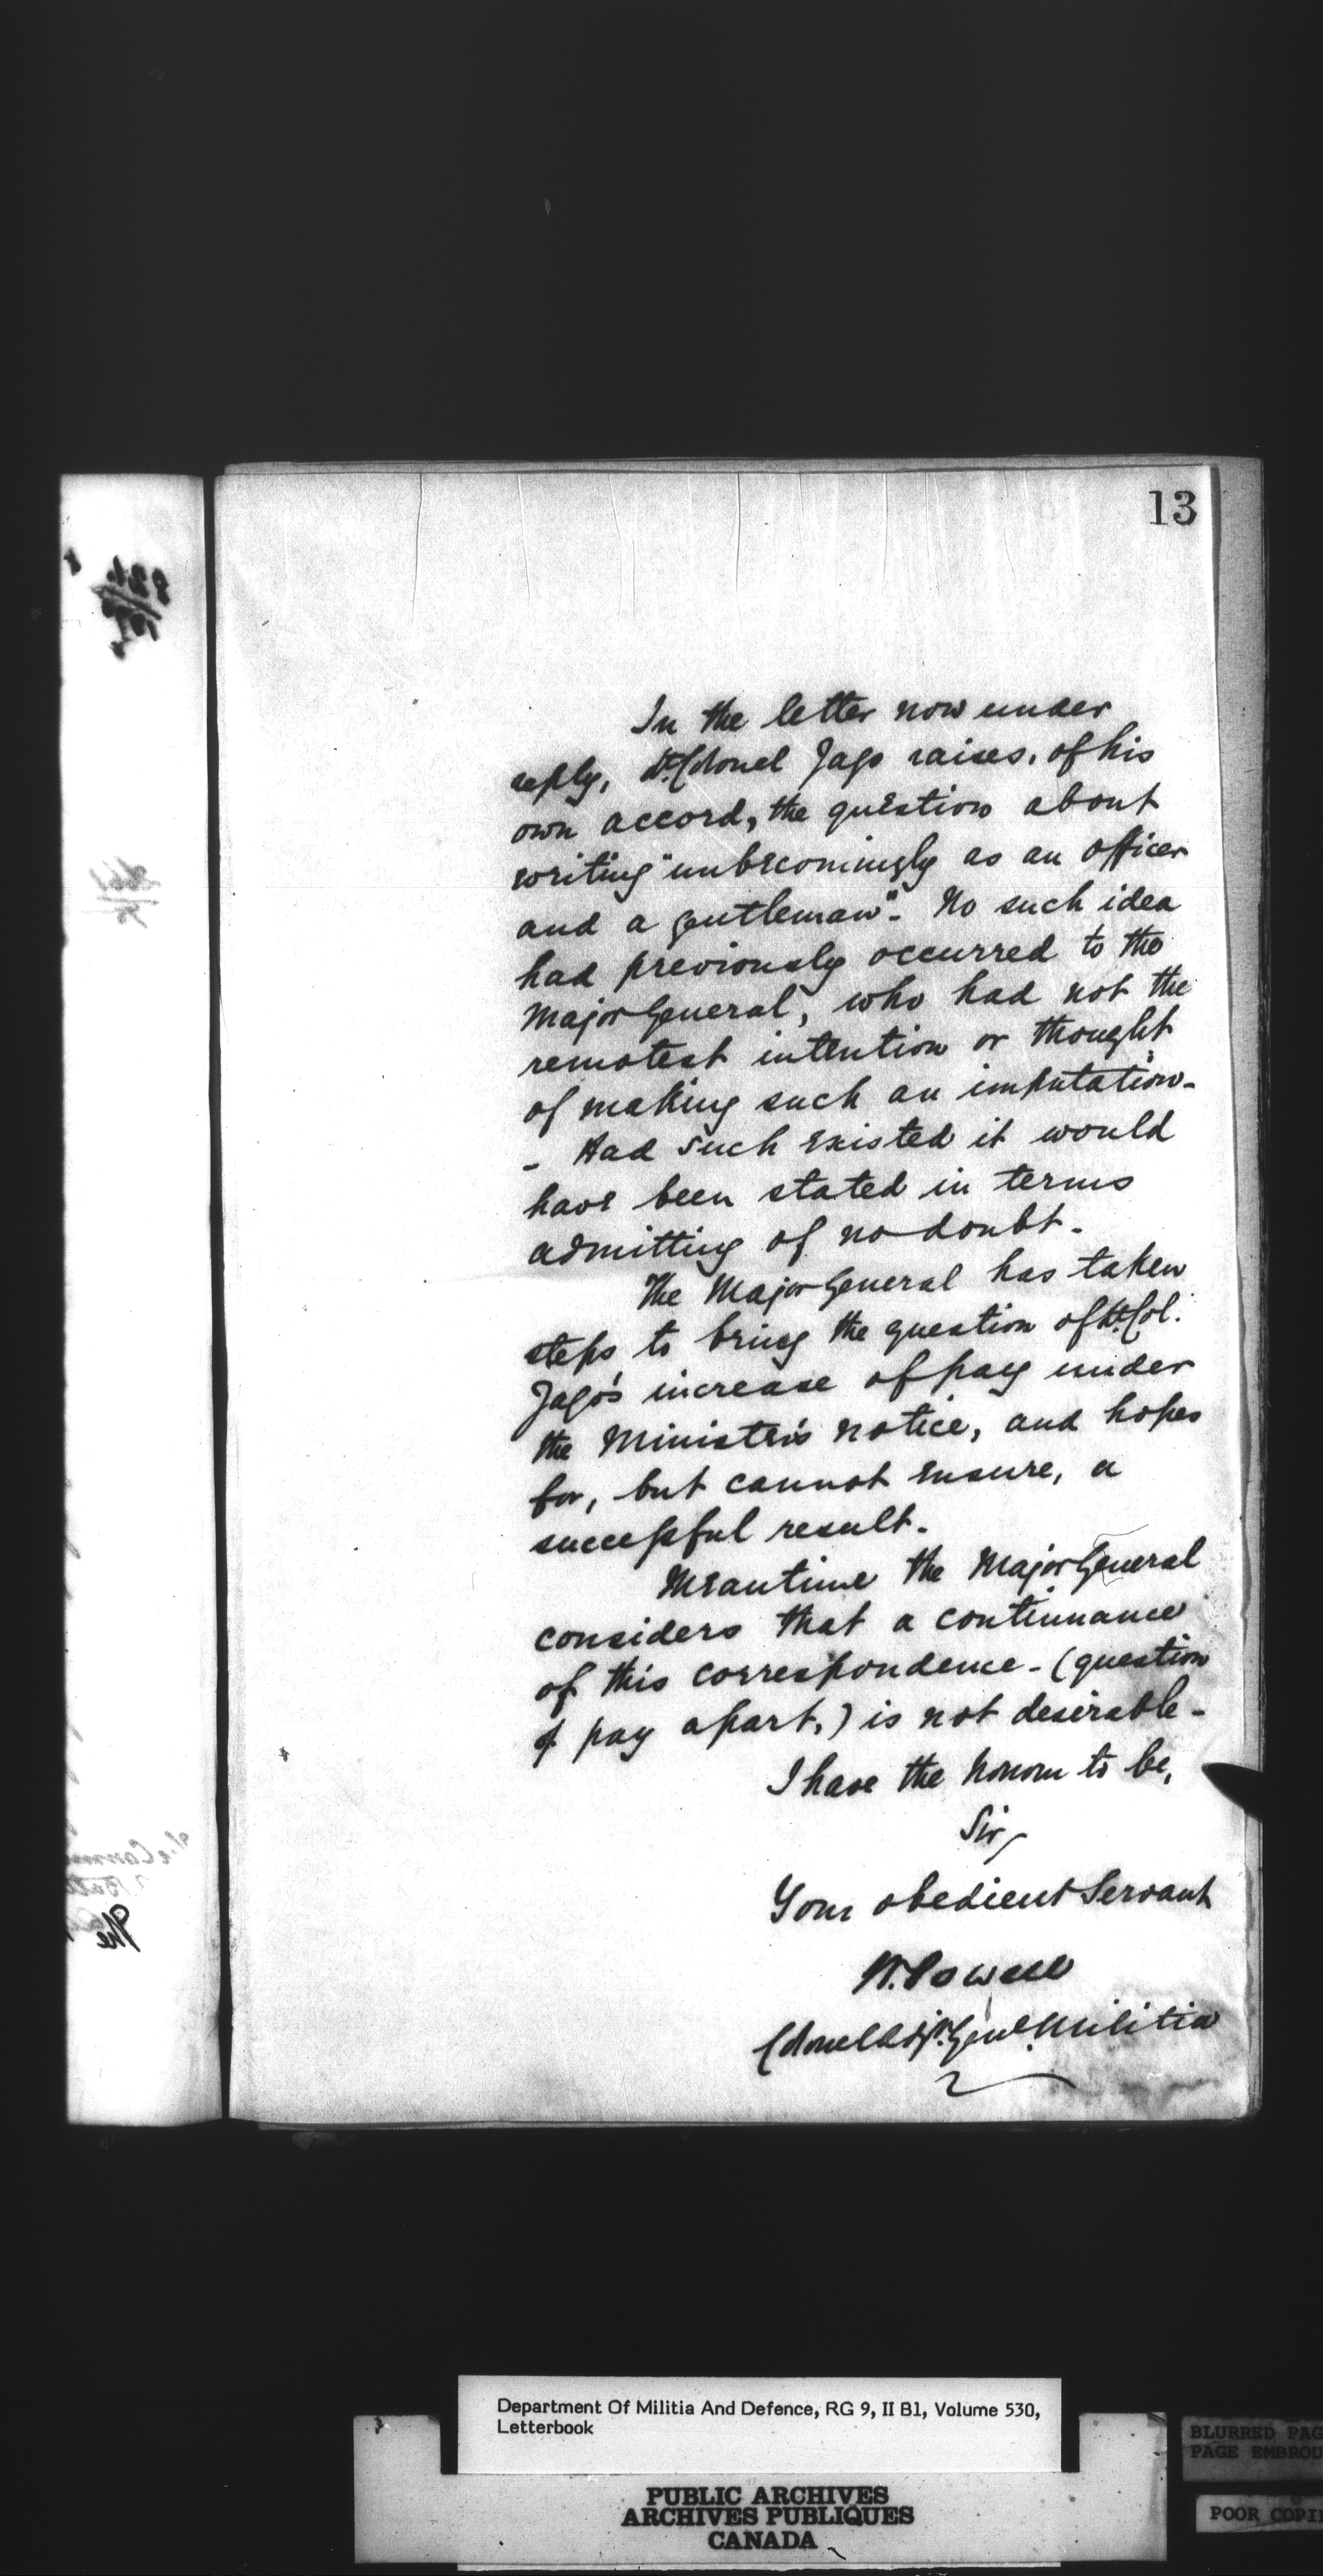 13
In the letter now under
reply, Lt. Colonel Jago raises, of his
own accord, the question about
writing "unbecomingly as an officer
and a gentleman". No such idea
had previously occurred to the
Major General, who had not the
remotest intention or thought
of making such an imputation-
- Had such existed it would
have been stated in terms
admitting of no doubt-
The Major General has taken
steps to bring the question of Lt. Col.
Jago's increase of pay under
the Minister's notice, and hopes
for, but cannot ensure, a
successful result.
Meantime the Major General
considers that a continuance
of this correspondence - (question
of pay apart,) is not desirable-
I have the honour to be,
Sir,
Your obedient Servant
W. Powell
Colonel Adjt. Genl. Militia
The
Department Of Militia And Defence, RG 9, II B1, Volume 530,
Letterbook
PUBLIC ARCHIVES
ARCHIVES PUBLIQUES
CANADA
BLURRED PAG
PAGE EMBROU
POOR COPI